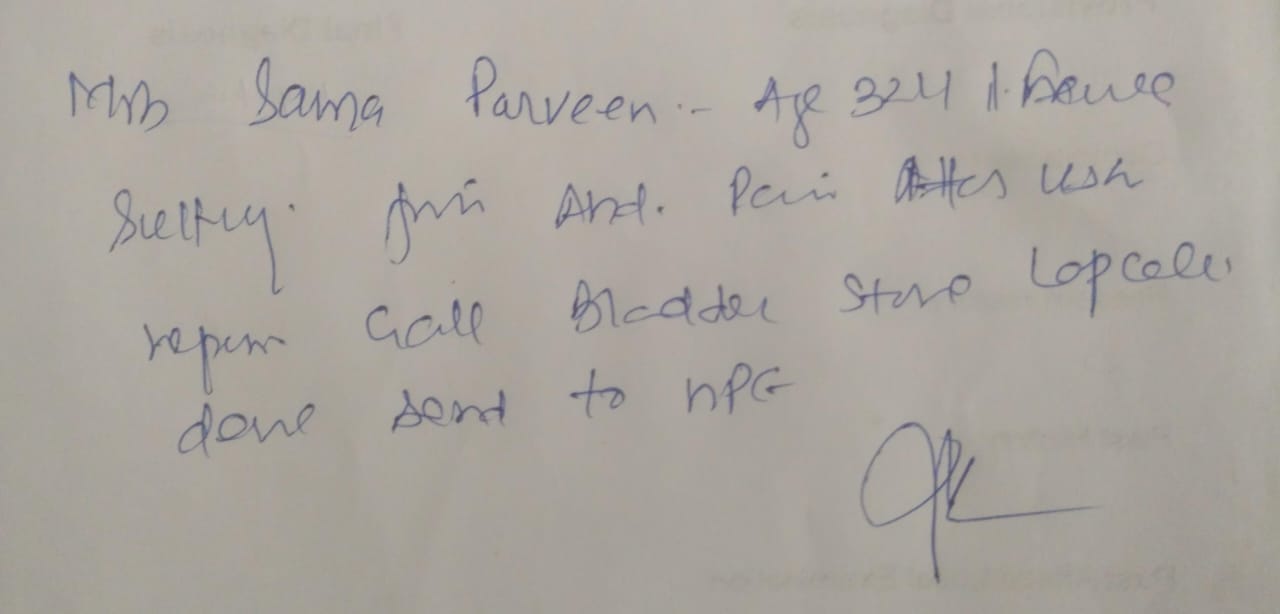 Mrs Sama Parveen :- Age 324 / Female
Suffering from Abd. Pain After USG
report Gall Bladder Stone Lap Cole
done send to HPG